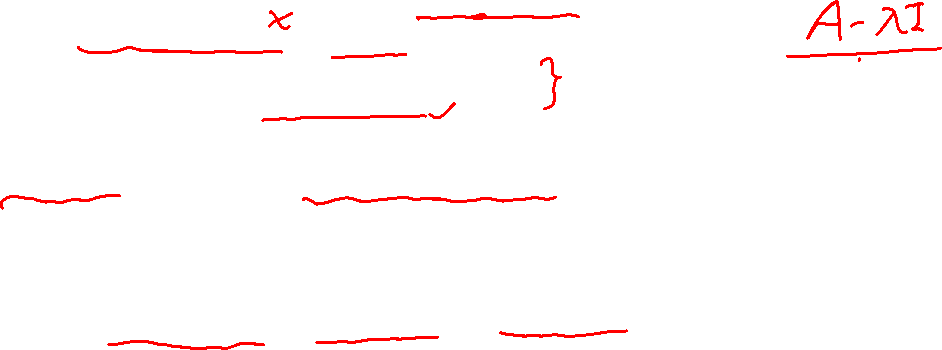 x
A - λI
}
✓